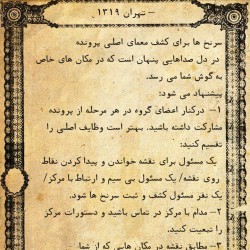 – تهران ۱۳۱۹
سرنخ ها برای کشف معمای اصلی پرونده
در دل صداهایی پنهان است که در مکان های خاص
به گوش شما می رسد.
پیشنهاد می شود:
۱– درکنار اعضای گروه در هر مرحله از پرونده
مشارکت داشته باشید. بهتر است وظایف اصلی را
تقسیم کنید:
یک مسئول برای نقشه خواندن و پیدا کردن نقاط
روی نقشه/ یک مسئول بی سیم و ارتباط با مرکز/
یک نفر مسئول کشف و ثبت سرنخ ها شود.
۲– مدام با مرکز در تماس باشید و دستورات مرکز
را تبعیت کنید.
۳– مطابق نقشه در مکان هایی که از شما